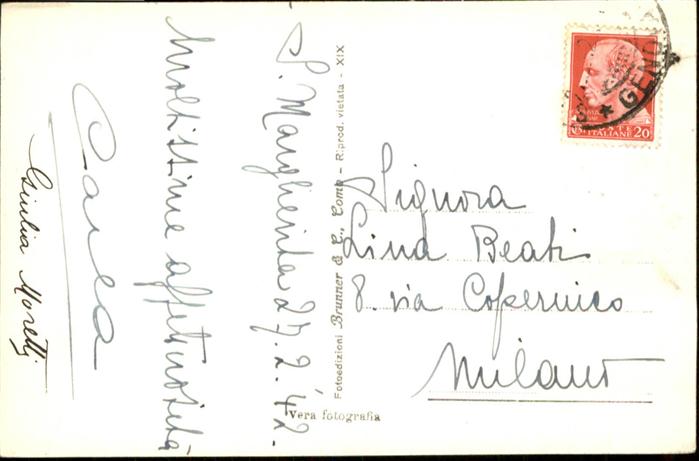 S. Margherita 27.2.42.
Moltissime affettuosità
Carla
Giulia Moretti
Fotoedizioni Brunner & C., Como - Riprod. vietata - XIX
Vera fotografia
Signora
Lina Beati
8. via Copernico
Milano
POSTE
ITALIANE 20
GENO